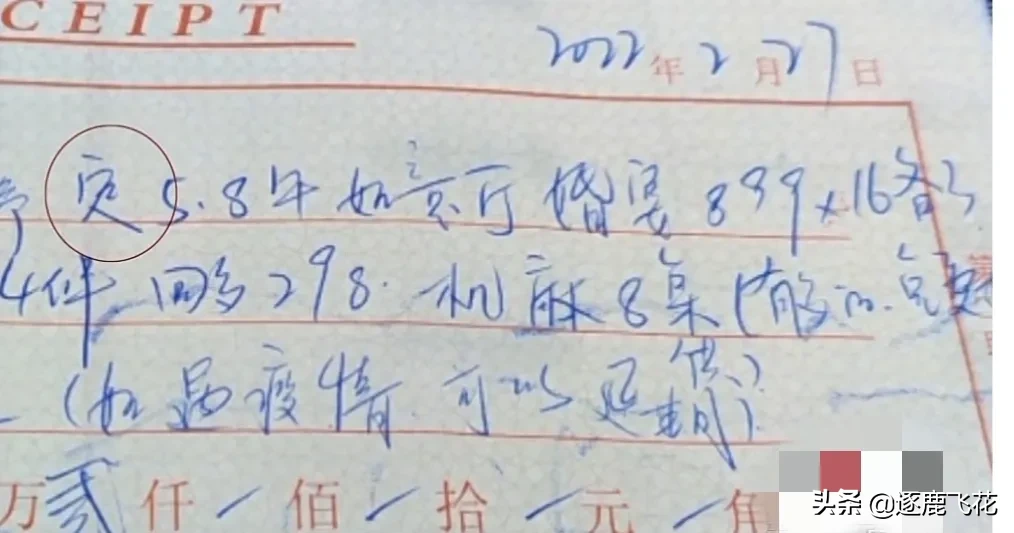 CEIPT
2022年2月27日
定5.8年如意厅婚宴899×16备3
4件 回多298. 机麻8桌(有多的.免费
(如遇疫情.可以延期)
万贰仟一佰一拾一元一角
头条 @逐鹿飞花